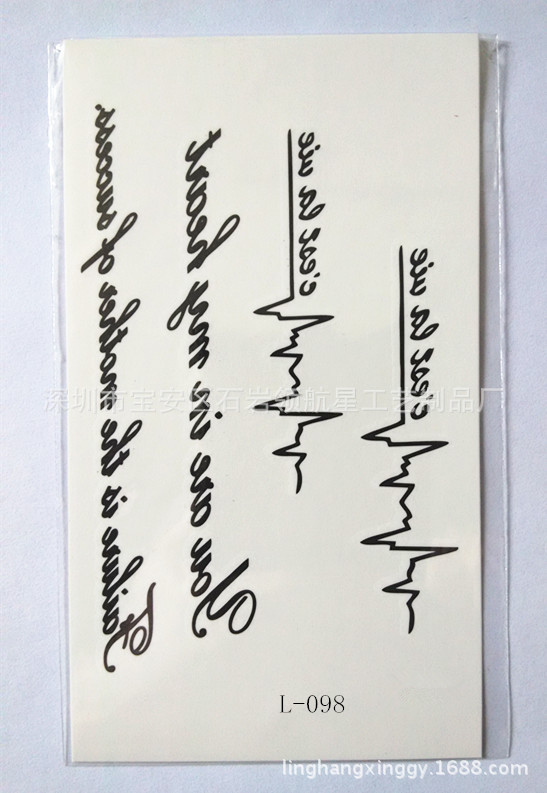 Failure is the mother of success.
You are in my heart
c'est la vie
c'est la vie
深圳市宝安区石岩领航星工艺制品厂
L-098
linghangxinggy.1688.com